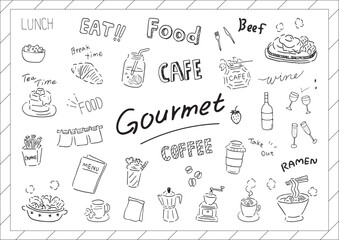 LUNCH
EAT!!
Food
Beef
Break
time
CAFE
CAFE
wine
Tea
Time
FOOD
Gourmet
MENU
COFFEE
Take
Out
RAMEN